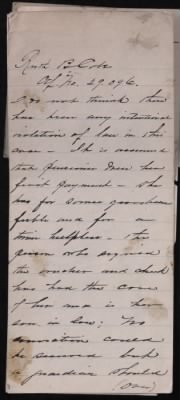 Ruth B Cole
Of. No. 29.096.
I do not think there
has been any intentional
violation of law in this
case – It is assumed
that pensioner drew her
first payment – she
has for some years been
feeble and for a
time helpless – the
person who signed
the voucher and check
has had the care
of her and is her
son in law; No
conviction could
be secured but
a guardian should
(over)